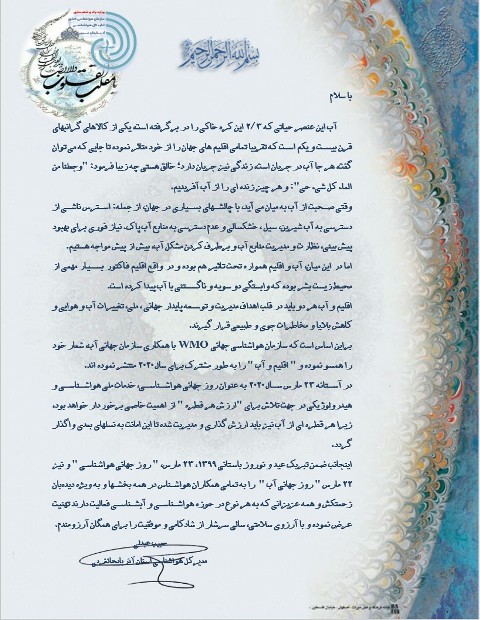 بسم الله الرحمن الرحیم
با سلام
آب این عنصر حیاتی که ۲/۳ این کره خاکی را در برگرفته است یکی از کالاهای گرانبهای
قرن بیست و یکم است که تقریبا تمامی اقلیم های جهان را از خود متاثر نموده تا جایی که می توان
گفته هر جا آب در جریان است زندگی نیز جریان دارد؛ خالق هستی چه زیبا فرمود: "وجعلنا من
الماء کل شیء حی": و هر چیز زنده ای را از آب آفریدیم.
وقتی صحبت از آب به میان می آید، با چالشهای بسیاری در جهان، از جمله: استرس ناشی از
دسترسی به آب شیرین، سیل، خشکسالی و عدم دسترسی به منابع آب پاک، نیاز فوری برای بهبود
پیش بینی، نظارت و مدیریت منابع آب و برطرف کردن مشکل آب بیش از پیش مواجه هستیم.
اما در این میان، آب و اقلیم همواره تحت تاثیر هم بوده و در واقع اقلیم فاکتور بسیار مهمی از
محیط زیست بشر بوده که وابستگی دو سویه و ناگسستنی با آب پیدا کرده است.
اقلیم و آب هر دو باید در قلب اهداف مدیریت و توسعه پایدار جهانی، ملی، تغییرات آب و هوایی و
کاهش بلایا و مخاطرات جوی و طبیعی قرار گیرند.
بر این اساس است که سازمان هواشناسی جهانی WMO با همکاری سازمان جهانی آب شعار خود
را همسو نموده و " اقلیم و آب " را به طور مشترک برای سال ۲۰۲۰ منتشر نموده اند.
در آستانه ۲۳ مارس سال ۲۰۲۰ به عنوان روز جهانی هواشناسی، خدمات ملی هواشناسی و
هیدرولوژیکی در جهت تلاش برای " ارزش هر قطره " از اهمیت خاصی برخوردار خواهد بود،
زیرا هر قطره ای از آب نیز باید ارزش گذاری و مدیریت شده تا این امانت به نسلهای بعدی واگذار
گردد.
اینجانب ضمن تبریک عید و نوروز باستانی ۱۳۹۹، ۲۳ مارس، " روز جهانی هواشناسی " و نیز
۲۲ مارس " روز جهانی آب " را به تمامی همکاران هواشناس در همه بخشها و به ویژه دیده بان
زحمتکش و همه عزیزانی که به هر نوع در حوزه هواشناسی و آبشناسی فعالیت دارند تهنیت
عرض نموده و با آرزوی سلامتی، سالی سرشار از شادکامی و موفقیت را برای همگان آرزومندم.
مدیر کل هواشناسی استان آذربایجانغربی